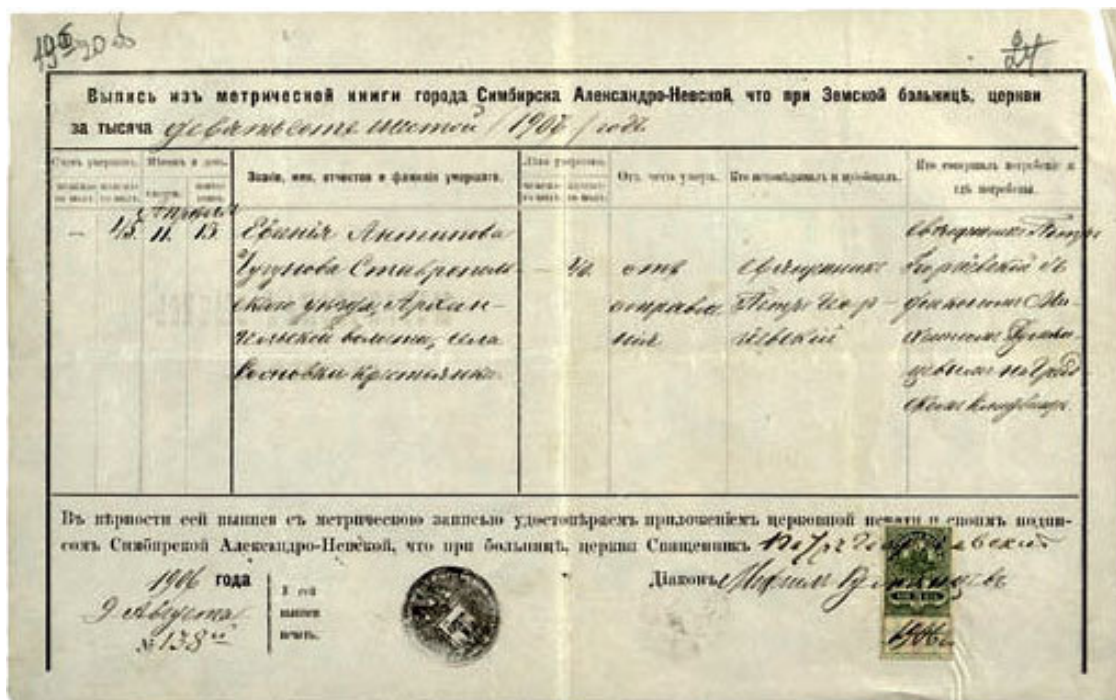 24
Выпись изъ метрической книги города Симбирска Александро-Невской, что при Земской больницѣ, церкви
за тысяча девятьсотъ шестой /1906/ годъ.
Счетъ умершихъ. Мѣсяцъ и день. Званіе, имя, отчество и фамилія умершаго. Лѣта умершаго. Отъ чего умеръ. Кто исповѣдывалъ и пріобщалъ. Кто совершалъ погребеніе и гдѣ погребены.
Апрѣля
— 45. 11. 13.
Антипова
Чугунова Ставрополь-
скаго уѣзда, Архан-
гельской волости, села
Сосновки крестьянка.
—
отъ
отравле-
нія
священникъ
Петръ Геор-
гіевскій
священникъ Петръ
Георгіевскій съ
діакономъ Ми-
хаиломъ Румян-
цевымъ на Град-
скомъ кладбищѣ.
Въ вѣрности сей выписи съ метрическою записью удостовѣряемъ приложеніемъ церковной печати и своимъ подпи-
сомъ Симбирской Александро-Невской, что при больницѣ, церкви Священникъ Петръ Георгіевскій
1906 года
9 Августа
№ 138
К сей
выписи
печать.
Діаконъ Михаилъ Румянцевъ
1906